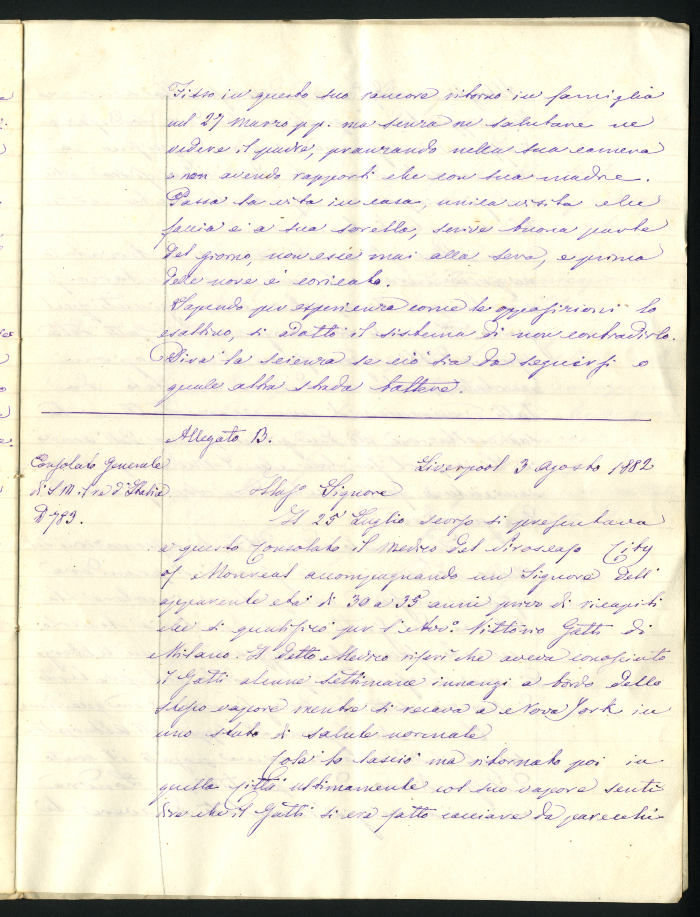 Fisso in questo suo rancore ritornò in famiglia
nel 27 Marzo p.p. ma senza nè salutare nè
vedere il padre, pranzando nella sua camera
e non avendo rapporti che con sua madre.
Passa la vita in casa, unica visita che
faccia è a sua sorella, scrive buona parte
del giorno, non esce mai alla sera, e prima
delle nove è coricato.
Sapendo per esperienza come le opposizioni lo
esaltino, si adottò il sistema di non contradirlo.
Dirà la scienza se ciò sia da seguirsi o
quale altra strada battere.
Allegato B.
Consolato Generale
di S.M. il re d'Italia
N 783.
Liverpool 3 agosto 1882
Illmo Signore
Il 25 Luglio scorso si presentava
a questo Consolato il medico del Piroscafo City
of Monreal accompagnando un Signore dell'
apparente età di 30 a 35 anni privo di ricapiti
che si qualificò per l'Avvo. Vittorio Gatti di
Milano. Il detto Medico riferì che aveva conosciuto
il Gatti alcune settimane innanzi a bordo dello
stesso vapore mentre si recava a Nova York in
uno stato di salute normale
Colà lo lasciò ma ritornato poi in
quella città ultimamente col suo vapore sentì
dire che il Gatti si era fatto cacciare da parecchi